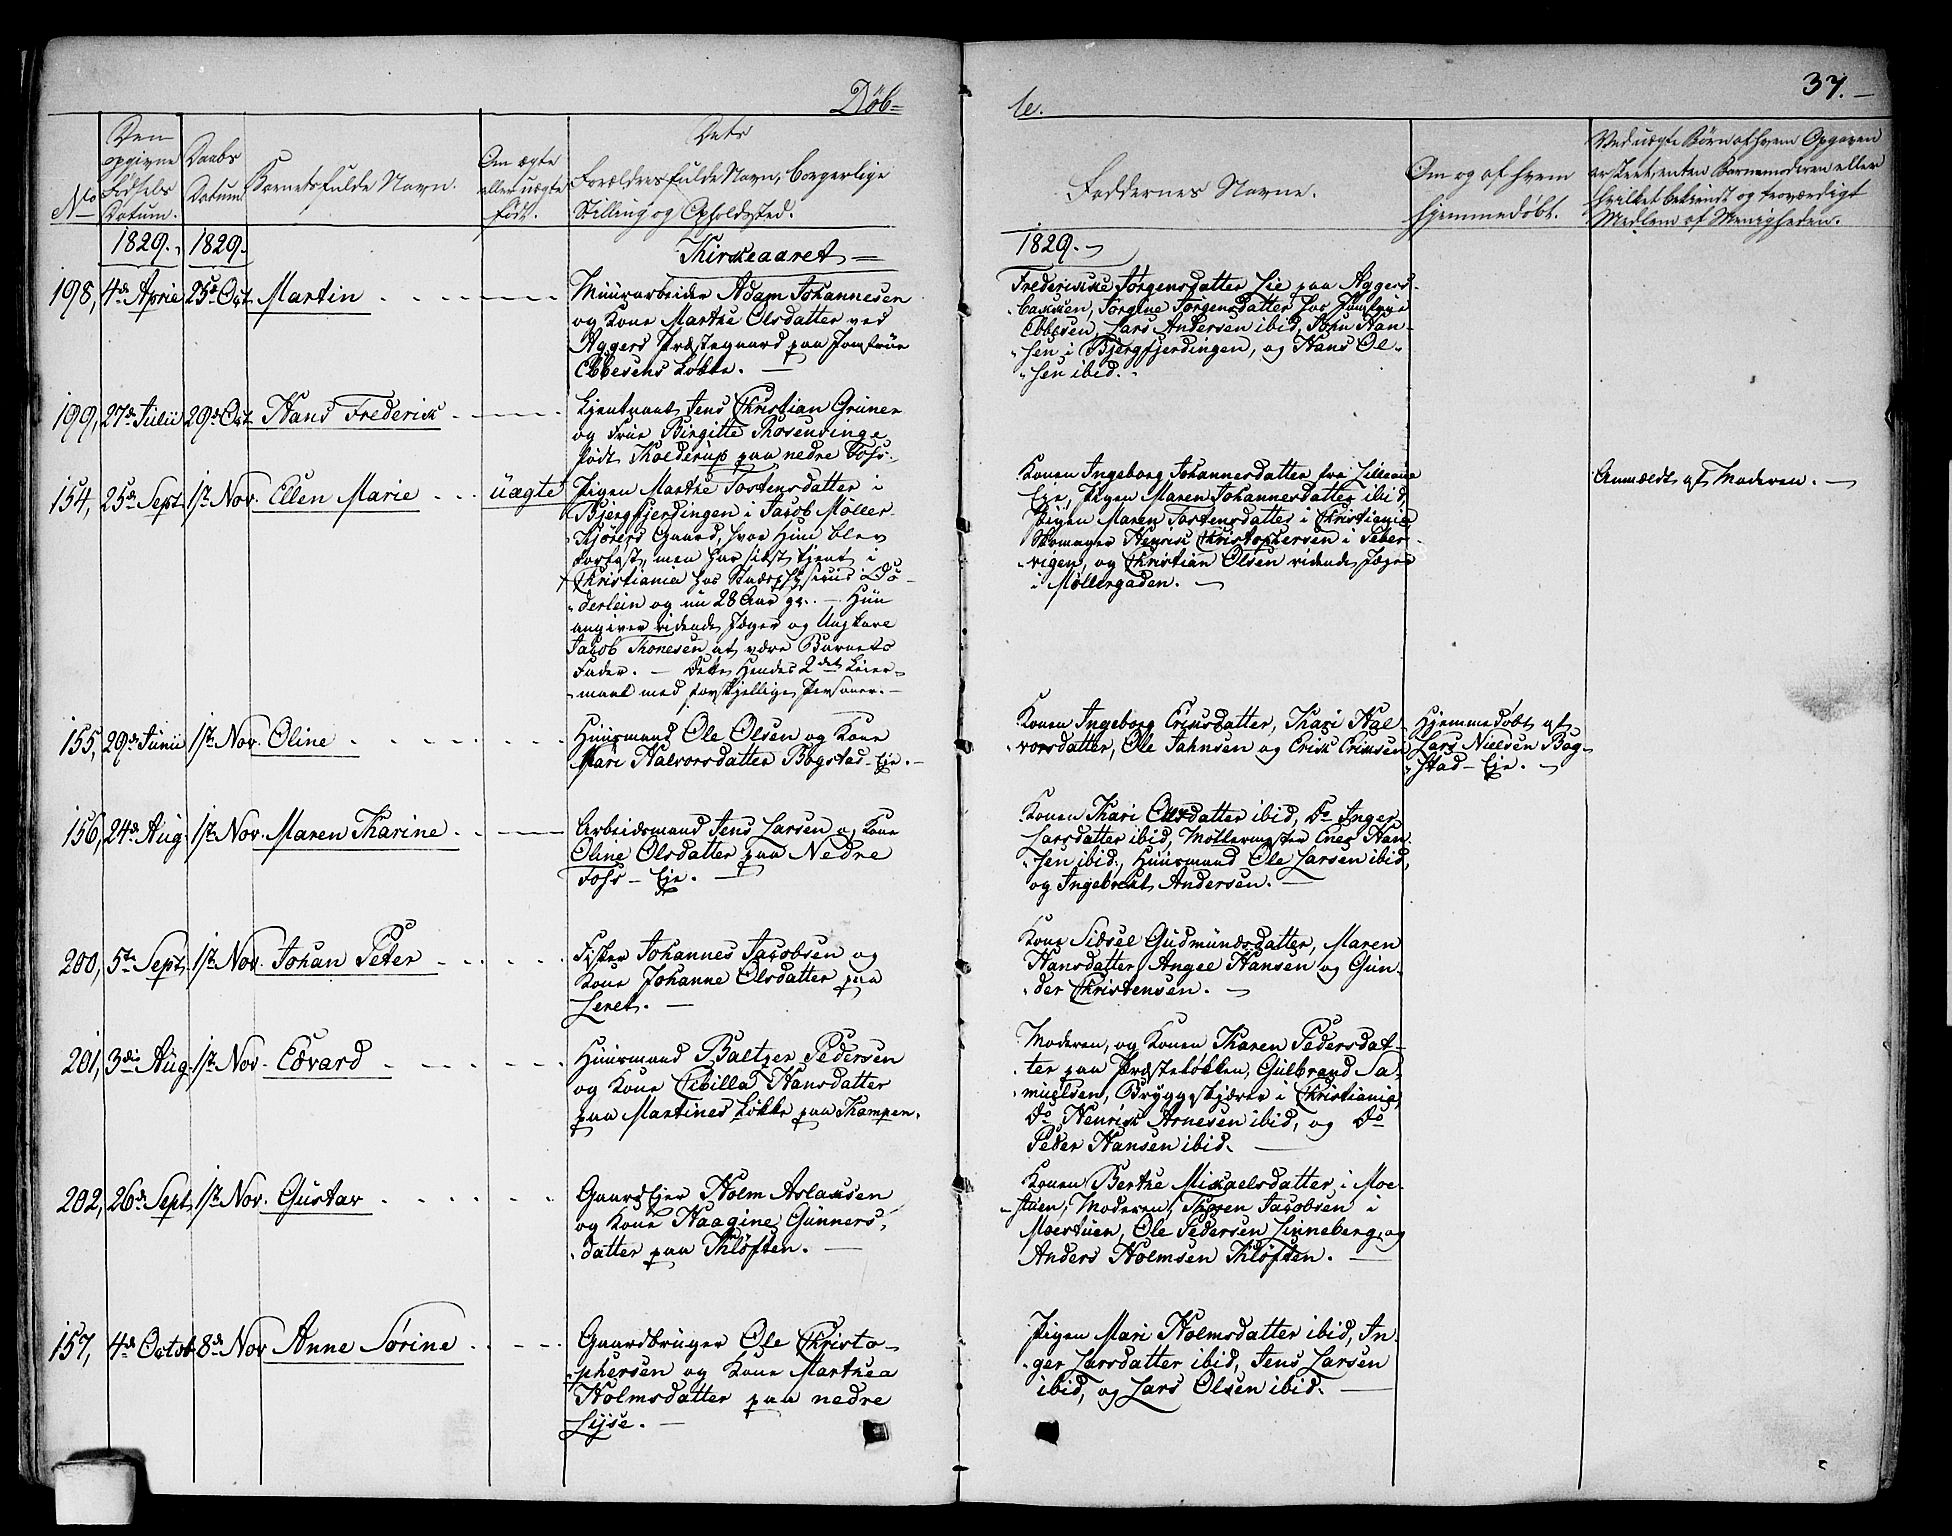 Döb=
te.
37.
No
Den opgivne Fødsels Datum.
Daabs Datum
Barnets fulde Navn.
Om ægte eller uægte født.
Dets Forældres fulde Navn, borgerlige Stilling og Opholdssted.
Faddernes Navne.
Om og af hvem hjemmedøbt.
Ved uægte Børn af hvem Opgaven er skeet, enten Barnemoderen eller hvilket bekiendt og troværdigt Medlem af Menigheden.
1829. 1829. Kirkeaaret 1829.
198, 4de April 25de Oct. Martin
Muurarbeider Adam Johannesen
og Kone Marthe Olsdatter ved
Aggers Præstegaard paa Jomfrue
Ebbesens Løkke.
Frederikke Jørgensdatter Lie paa Aggers-
bakken, Jørgine Jørgensdatter hos Jomfrue
Ebbesen, Lars Andersen ibid, John Han-
sen i Bjergfjerdingen, og Hans Ol-
sen ibid.
199, 27de Julii 29de Oct. Hans Frederik
Lieutnant Jens Christian Grüner
og Frue Birgitte Rosenvinge
født Kolderup paa nedre Foss.
154, 25de Sept. 1ste Nov. Ellen Marie uægte
Pigen Marthe Tostensdatter i
Bjergfjerdingen i Jacob Møller-
Kjørers Gaard, hvor hun blev
forløst, men har sidst tjent i
Christiania hos Stadsphysicus Dö-
derlein og nu 28 Aar gl. — Hun
angiver ridende Jæger og Ungkarl
Jacob Thonesen at være Barnets
Fader. — Dette Hendes 2det Leier-
maal med forskjellige Personer. —
Konen Ingeborg Johannesdatter fra Lilleaue
Eje, Pigen Maren Johannesdatter ibid,
Pigen Maren Tostensdatter i Christiania
Skomager Henrik Christophersen i Peber-
vigen, og Christian Olsen ridende Jæger
i Møllergaden.
Anmeldt af Moderen.
155, 29de Junii 1ste Nov. Oline
Huusmand Ole Olsen og Kone
Mari Halvorsdatter Bogstad-Eje.
Konen Ingeborg Eriksdatter, Kari Hal
vorsdatter, Ole Jahnsen og Erik Eriksen
Hjemmedøbt af
Lars Nielsen Bog-
stad-Eje.
156, 24de Aug. 1ste Nov. Maren Karine
Arbeidsmand Jens Larsen og Kone
Oline Olsdatter paa Nedre
Foss-Eje.
Konen Kari Olsdatter ibid, Do Inger
Larsdatter ibid, Møllermester Enes Han-
sen ibid, Huusmand Ole Larsen ibid,
og Ingebret Andersen.
200, 5te Sept. 1ste Nov. Johan Peter
Fisker Johannes Jacobsen og
Kone Johanne Olsdatter paa
Leret.
Kone Sidsel Gudmundsdatter, Maren
Hansdatter, Angel Hansen og Gun-
der Christensen.
201, 3die Aug. 1ste Nov. Edvard
Huusmand Baltzer Pedersen
og Kone Cibilla Hansdatter
paa Martines Løkke paa Kampen.
Moderen, og Konen Karen Pedersdat-
ter paa Præsteløkken, Gulbrand Sa-
muelsen, Bryggeskjærer i Christiania,
Do Henrik Arnesen ibid, og Do
Peder Hansen ibid.
202, 26de Sept. 1ste Nov. Gustav
Gaardejer Holm Aslaksen
og Kone Haagine Gunners-
datter paa Kløften.
Konen Berthe Mikaelsdatter i Moe-
stuen, Moderen, Thosen Jacobsen i
Moestuen, Ole Pedersen Linneberg, og
Anders Holmsen Kløften.
157, 4de Octob. 8de Nov. Anne Sørine
Gaardbruger Ole Christo-
phersen og Kone Marthea
Holmsdatter paa nedre
Lijse.
Pigen Mari Holmsdatter ibid, In-
ger Larsdatter ibid, Jens Larsen
ibid, og Lars Olsen ibid.